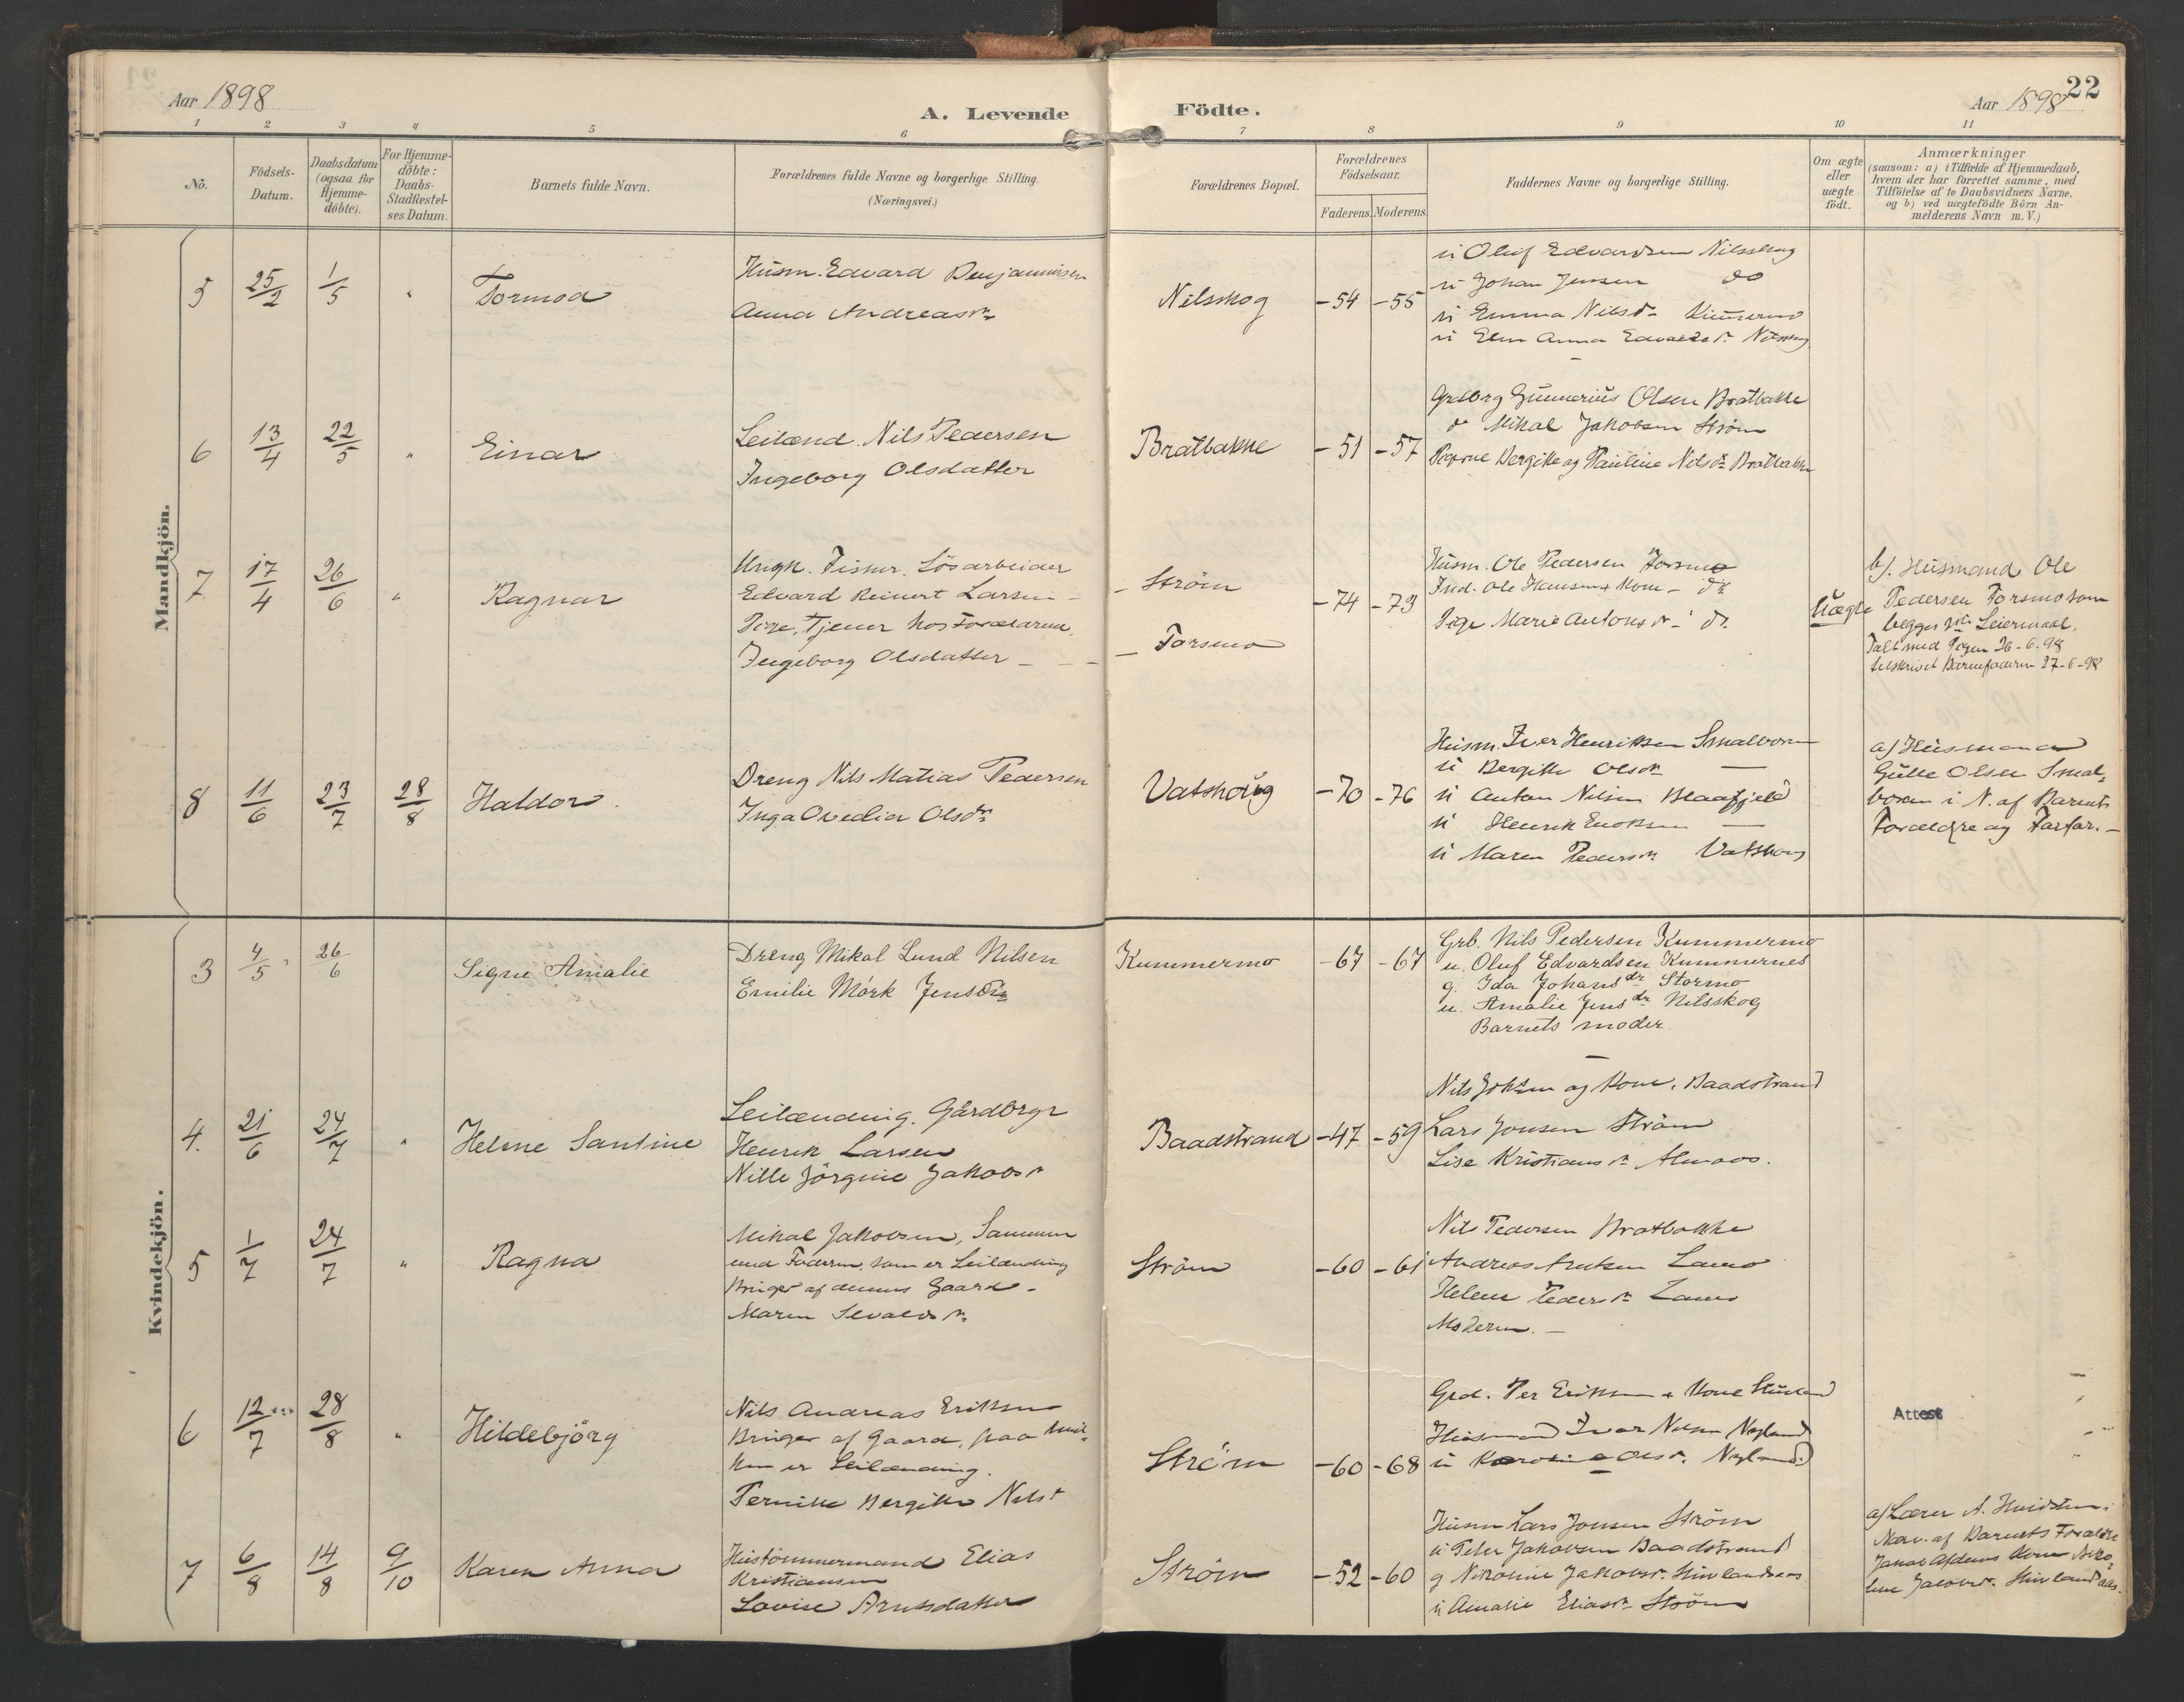 Aar 1898
A. Levende Födte.
Aar 1898
22
1 2 3 4 5 6 7 8 9 10 11
No.
Födsels-Datum.
Daabsdatum (ogsaa for Hjemme-döbte).
For Hjemme-döbte: Daabs-Stadfæstel-ses Datum.
Barnets fulde Navn.
Forældrenes fulde Navne og borgerlige Stilling.
(Næringsvei.)
Forældrenes Bopæl.
Forældrenes Födselsaar.
Faderens. Moderens.
Faddernes Navne og borgerlige Stilling.
Om ægte eller uægte födt.
Anmærkninger
(saasom: a) i Tilfælde af Hjemmedaab,
hvem der har forrettet samme, med
Tilföielse af to Daabsvidners Navne.
og b) ved uægtefödte Börn An-
melderens Navn m. V.)
Mandkjön.
5 25/2 1/5 " Tormod
Husm. Edvard Benjaminsen
Anna Andreasdr
Nilsskog -54 -55
u Oluf Edvardsen Nilsskog
u Johan Jensen do
u Emma Nilsdr
u Elen Anna Edvardsdr Nilsskog
6 13/4 22/5 " Einar
Leilænd. Nils Pedersen
Ingeborg Olsdatter
Bratbakke -51 -57
Grdbrg Gunnerius Olsen Bratbakke
do Mikal Jakobsen Strøm
Pigerne Bergitte og Pauline Nilsdr Bratbakke
7 17/4 26/6 " Ragnar
Ungk. Fisker. Lösarbeider
Edvard Reinert Larsen -
Pige, Tjener hos Forældrene,
Ingeborg Olsdatter - - -
- Strøm
- Forsmo
-74 -73
Husm. Ole Pedersen Forsmo
Ind. Ole Hansen + Kone - do
Pige Marie Antonsdr - do.
Uægte
b/. Husmand Ole
Pedersen Forsmo som
begges Leiermaal.
Talt med Pigen 26-6-98
tilskrivet Barnefaderen 27-6-98
8 11/6 23/7 28/8 Haldor.
Dreng Nils Matias Pedersen
Inga Ovedia Olsdr
Vatshoug -70 -76
Husm. Iver Henriksen Smalvoren
u Bergitte Olsdr —
u Anton Nilsen Blaafjeld
u Henrik —
u Maren Pedersdr Vatshoug
a/ Husmand
Olsen Smal-
voren i N. af Barnets
Forældre og Farfar. -
Kvindekjön.
3 4/5 26/6 Signe Amalie
Dreng Mikal Lund Nilsen
Emilie Mörk Jensdtr
Kummermo -67 -67
Grb. Nils Pedersen Kummermo
u. Oluf Edvardsen Kummernes
g. Ida Johansdr Stormo
u. Amalie Jensdr Nilsskog
Barnets moder.
4. 21/6 24/7 " Helme Santine
Leilænding. Gårdbrgr
Henrik Larsen
Nille Jörgine Jakobsdr
Baadstrand -47 -59
Nils og Kone. Baadstrand
Lars Jonsen Strøm
Lise Kristiansdr Almaas.
5 1/7 24/7 " Ragna
Mikal Jakobsen, Sammen
med Faderen, som er Leilænding
Bruger af dennes Gaard -
Maren Sevaldsdr
Strøm -60 -61
Nils Pedersen Bratbakke
Andreas
Helene Pedersdr
Moderen. -
6 12/7 28/8 " Hildebjörg
Nils Andreas Eriksen
Bruger af Gaard, paa hvil-
ken er Leilænding.
Pernille Bergitte Nilsdr
Ström -60 -68
Grd. Per Eriksen + Kone
Husmand Ivar Nilsen Nyland
u Karoline Olsdr. Nyland
Attest
7 6/8 14/8 9/10 Karen Anna
Hustömmermand Elias
Kristiansen
Lovise Arntsdatter
Ström -52 -60
Husm Lars Jonsen Ström
u Peter Jakobsen Baadstrand
g Nikoline Jakobsdr.
u Amalie Eliasdr Ström
a/ Lærer A.
Nærv. af Barnets Forældre